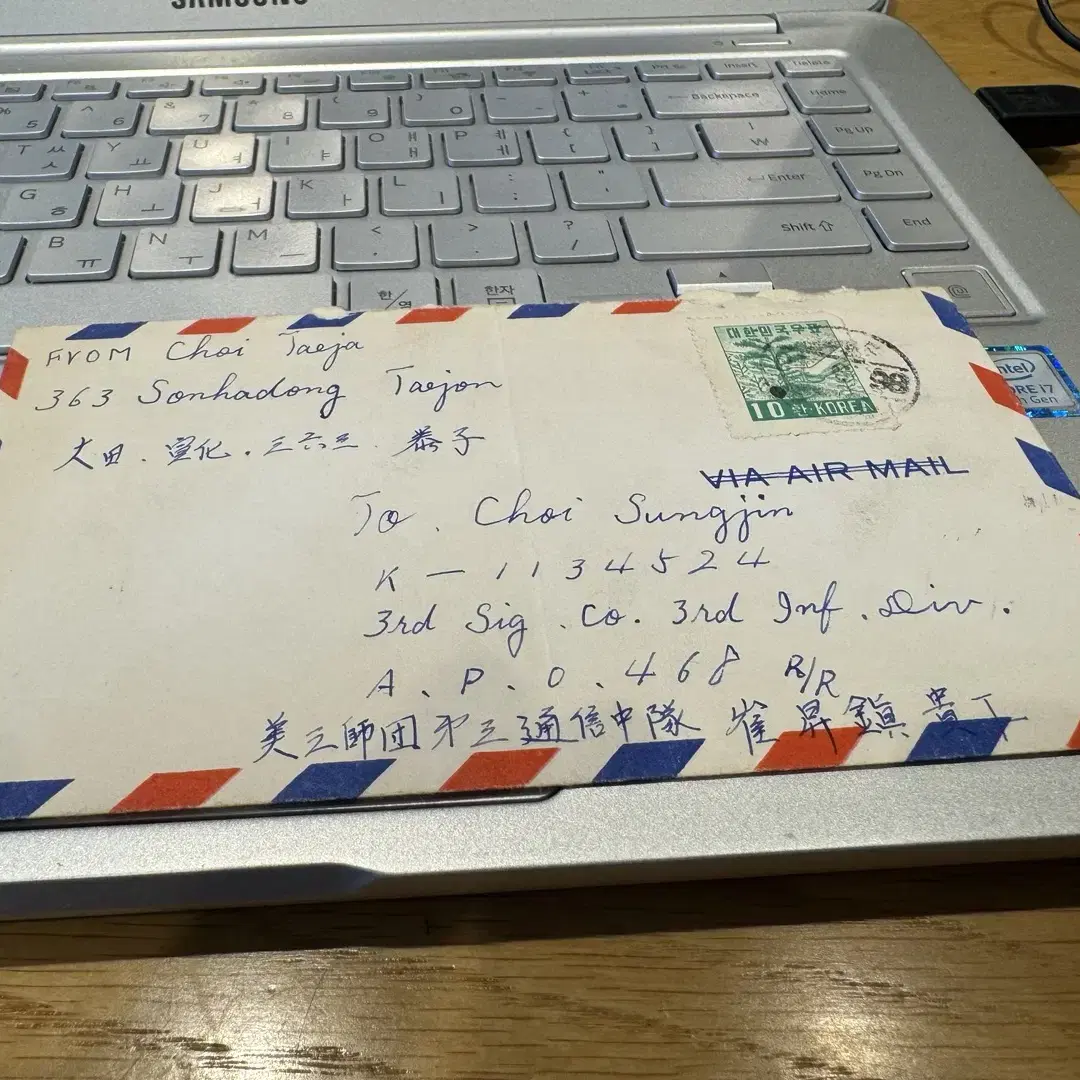 SAMSUNG
% 5 ^ 6 & 7 * 8 ( 9 ) 0 - + = ← Backspace Home
T ㅆ ㅅ Y ㅛ U ㅕ I ㅑ O ㅒ ㅐ P ㅖ ㅔ { [ } ] | W Pg Up
G ㅎ H ㅗ J ㅓ K ㅏ L ㅣ : ; " ' ↵ Enter Pg Dn
B ㅠ N ㅜ M ㅡ < , > . ? / Shift ⇧ End
한/영 한자
Insert Delete
FROM Choi Taeja
363 Sonhadong Taejon
大田.宣化.三六三. 恭子
대한민국우표
10환 KOREA
VIA AIR MAIL
To. Choi Sungjin
K-1134524
3rd Sig. Co. 3rd Inf. Div.
A.P.O. 468 R/R
美三師団第三通信中隊 崔昇鎭 貴下
intel
CORE i7
Gen